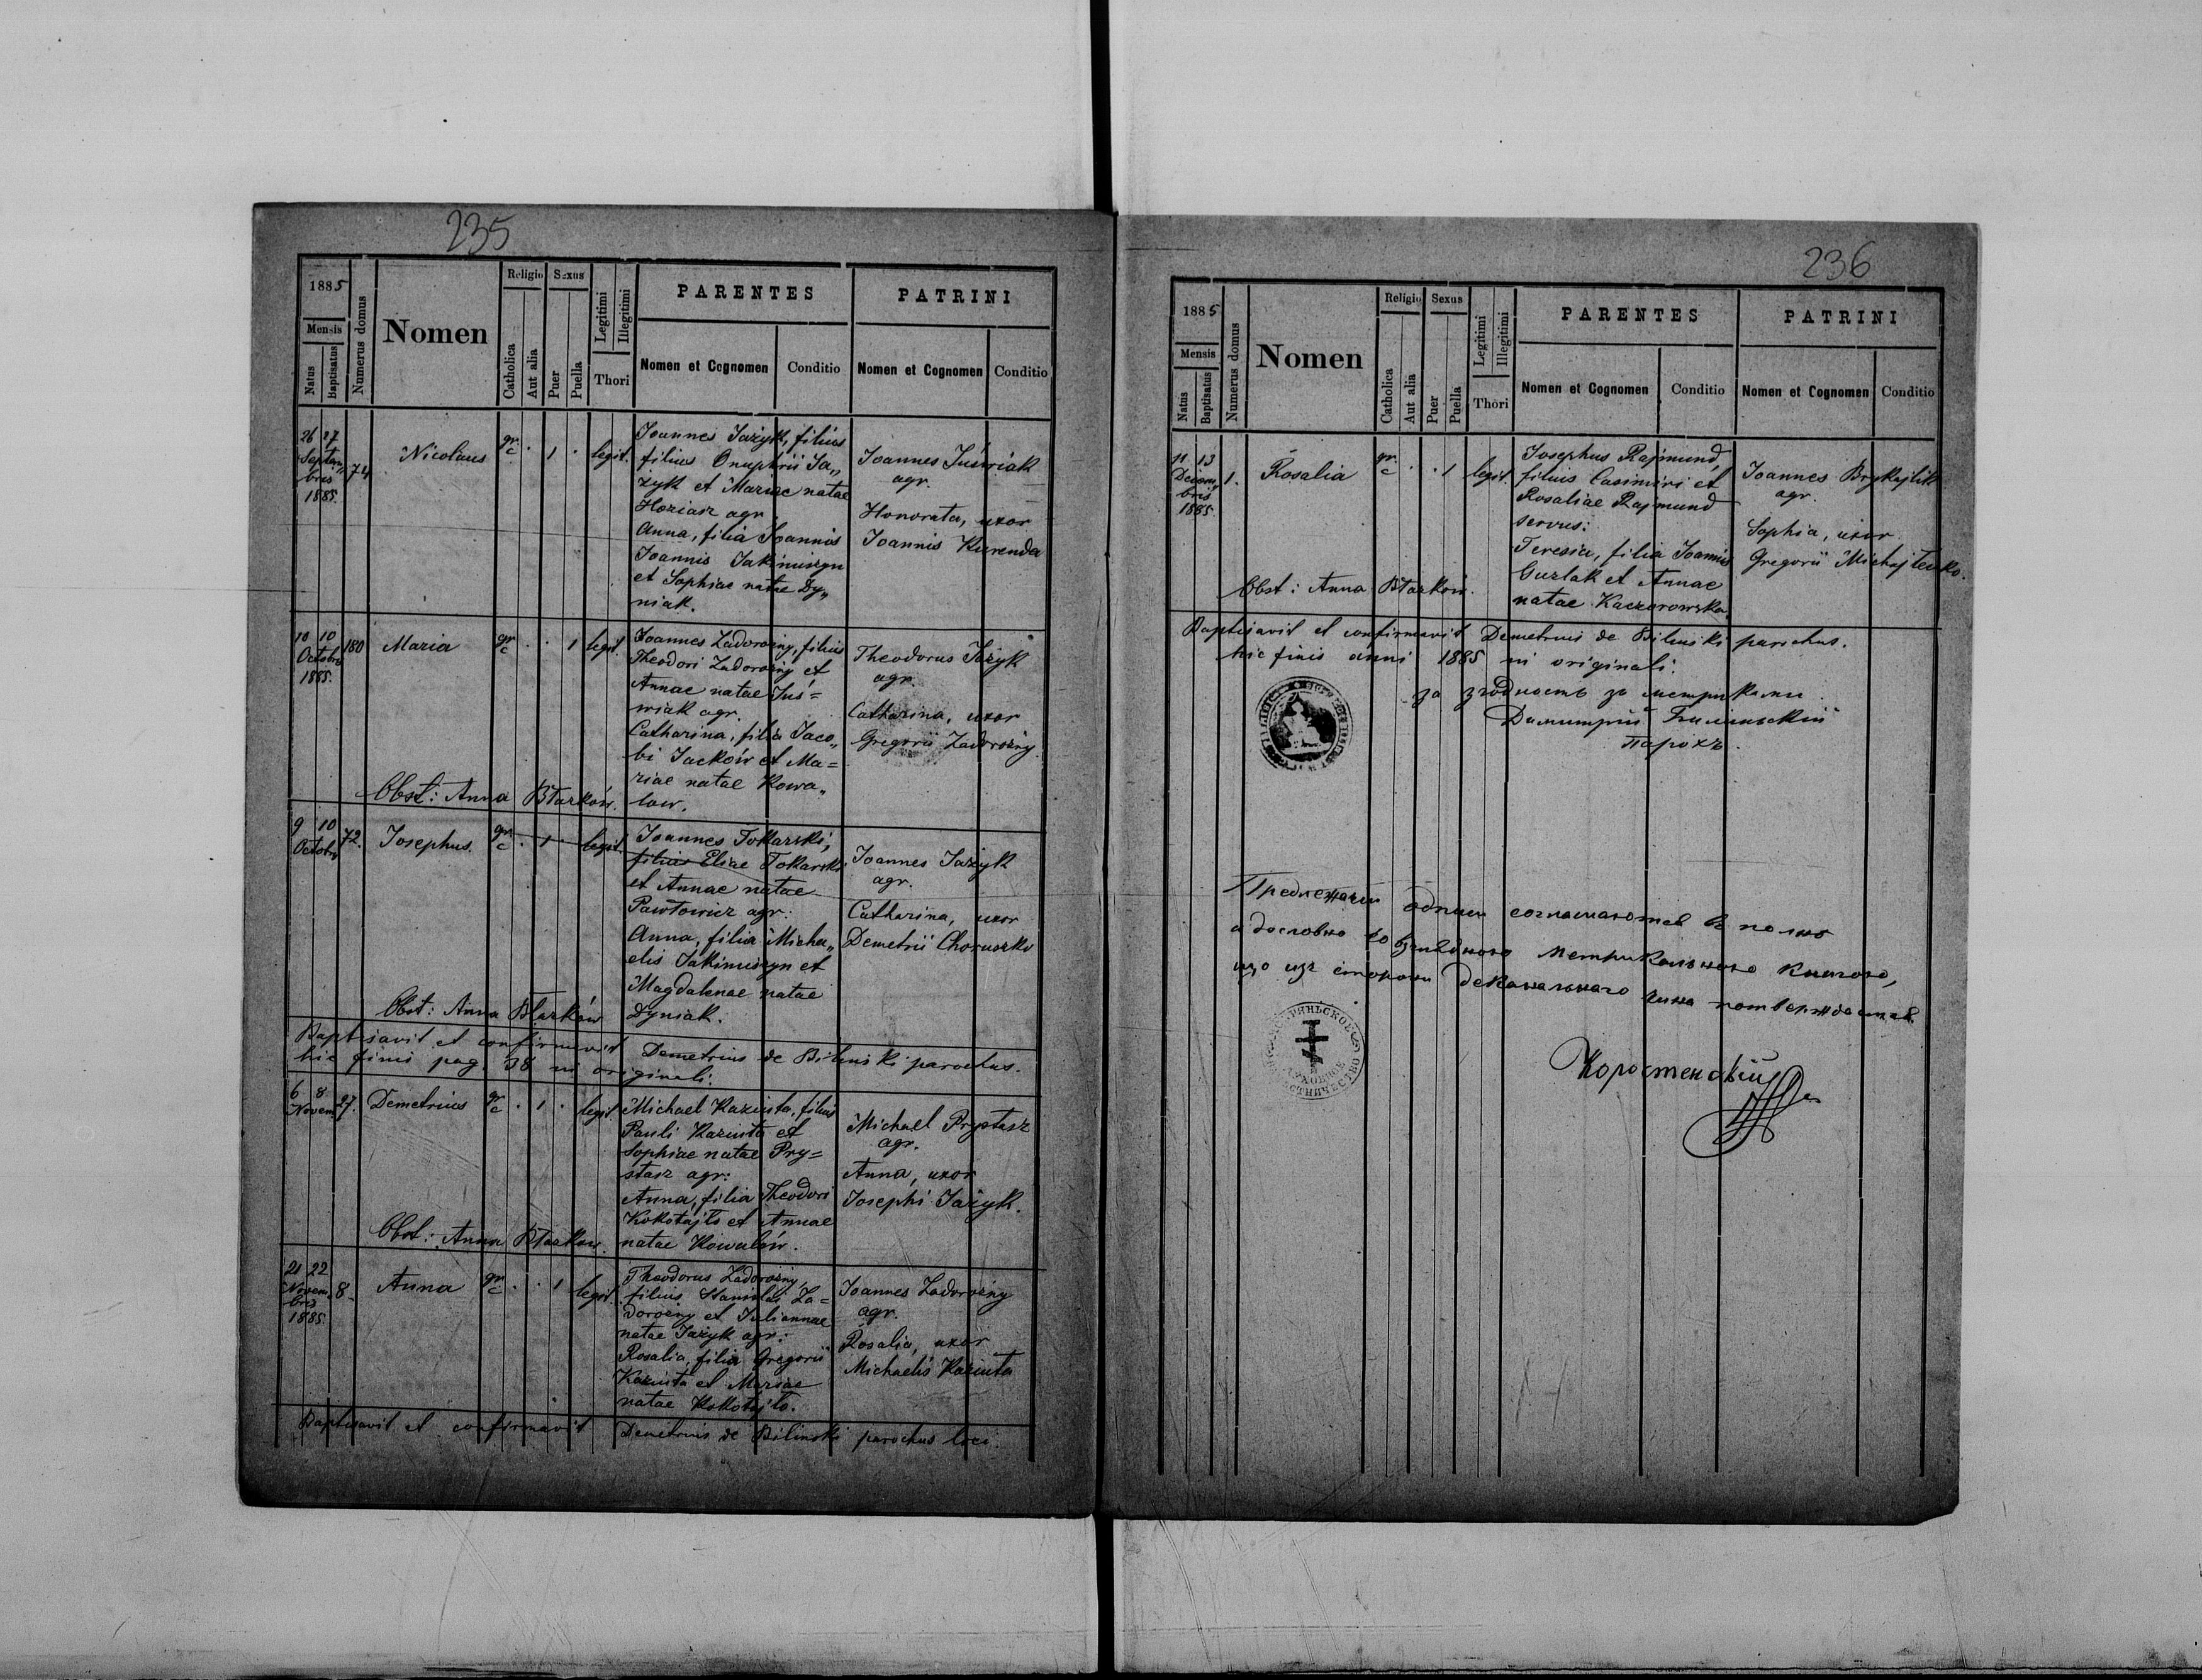 235
1885
Mensis
Natus
Baptisatus
Numerus domus
Nomen
Religio
Catholica
Aut alia
Sexus
Puer
Puella
Legitimi
Illegitimi
Thori
PARENTES
Nomen et Cognomen
Conditio
PATRINI
Nomen et Cognomen
Conditio
26 27
Septem„
bris
1885.
74
Nicolaus
gr.
c
1
legit.
Joannes Jazyk, filius
filius Onuphrii Ja„
zyk et Mariae natae
Hoziasz agr.
Anna, filia Joannis
Joannis Jakimiszyn
et Sophiae natae Dy„
niak.
Joannes Juświak
agr.
Honorata, uxor
Joannis Kurenda
10 10
Octobr
1885.
180
Maria
gr
c
1
legit.
Joannes Zadorożny, filius
Theodori Zadorożny et
Annae natae Juś=
wiak agr.
Catharina, filia Jaco„
bi Jacków et Ma=
riae natae Kowa„
low.
Theodorus Jazyk
agr.
Catharina, uxor
Gregorii Zadorożny.
Obst: Anna Błazków.
9 10
Octobr
72.
Josephus
gr
c
1
legit.
Joannes Tokarski,
filius Eliae Tokarski
et Annae natae
Pawłowicz agr:
Anna, filia Micha„
elis Jakimiszyn et
Magdalenae natae
Dyniak.
Joannes Jazyk
agr.
Catharina, uxor
Demetrii Choruszko
Obst: Anna Błazków
Baptisavit et confirmavit Demetrius de Bilinski parochus.
hic finis pag. 38 in originali.
6 8
Novem
27.
Demetrius
gr
c
1
legit
Michael Kaziuta, filius
Pauli Kaziuta et
Sophiae natae Pry=
stasz agr:
Anna, filia Theodori
Kokotajło et Annae
natae Kowalów.
Michael Prystasz
agr.
Anna, uxor
Josephi Jazyk.
Obst: Anna Błazkow.
21 22
Novem„
bris
1885.
8
Anna
gr
c
1
legit.
Theodorus Zadorożny,
filius Stanislai Za=
dorożny et Juliannae
natae Jazyk agr:
Rosalia, filia Gregorii
Kaziuta et Mariae
natae Kokotajło.
Joannes Zadorożny
agr.
Rosalia, uxor
Michaelis Kaziuta
Baptisavit et confirmavit Demetrius de Bilinski parochus loci.
236
1885
Mensis
Natus
Baptisatus
Numerus domus
Nomen
Religio
Catholica
Aut alia
Sexus
Puer
Puella
Legitimi
Illegitimi
Thori
PARENTES
Nomen et Cognomen
Conditio
PATRINI
Nomen et Cognomen
Conditio
11 13
Decem„
bris
1885.
1.
Rosalia
gr.
c
1
legit.
Josephus Rajmund,
filius Casimiri et
Rosaliae Rajmund
servus:
Teresia, filia Joannis
Guzlak et Annae
natae Kaczorowska
Joannes
agr.
Sophia, uxor
Gregorii
Obst: Anna Błazków.
Baptisavit et confirmavit Demetrius de Bilinski parochus.
hic finis anni 1885 in originali.
за згодность зъ метриками
Димитрій Билиньскій
Парохъ.
Предлежачи соглашаются въ полно
а дословно со метрикальною книгою,
що изъ стороны деканального потверждается.